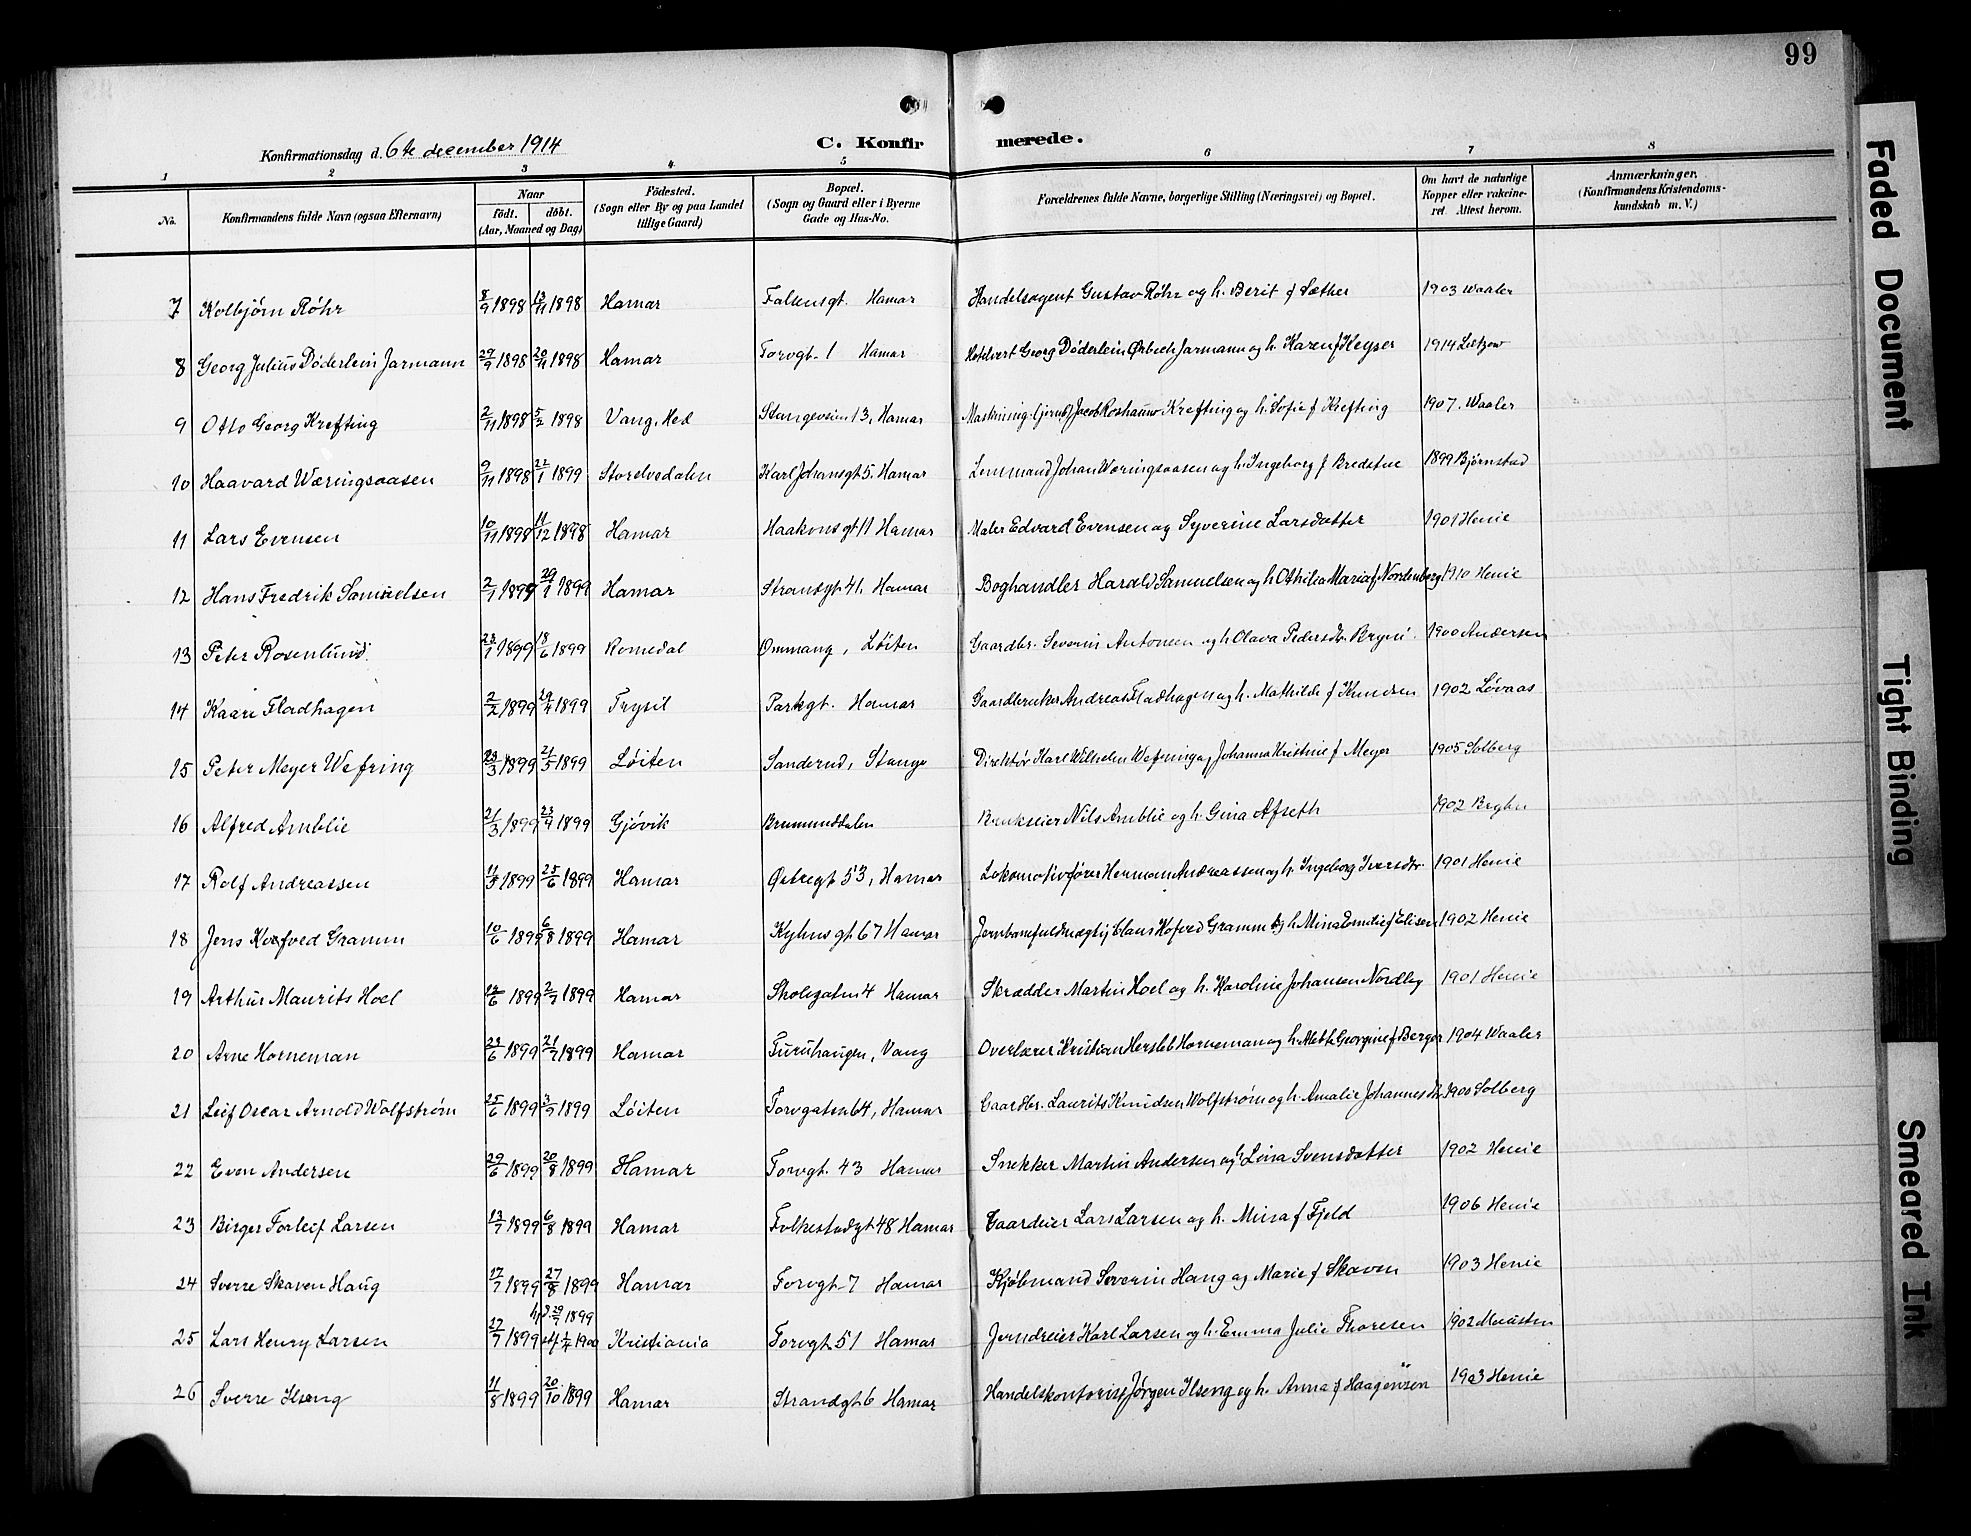 99
Konfirmationsdag d. 6te december 1914
C. Konfirmerede.
1 2 3 4 5 6 7 8
No. Konfirmandens fulde Navn (ogsaa Efternavn) Naar født. døbt. (Aar, Maaned og Dag) Fødested. (Sogn eller By og paa Landet tillige Gaard) Bopæl. (Sogn og Gaard eller i Byerne Gade og Hus-No. Forældrenes fulde Navne, borgerlige Stilling (Næringsvei) og Bopæl. Om havt de naturlige Kopper eller vakcineret Attest herom. Anmærkninger. (Konfirmandens Kristendomskundskab m. V.)
7 Kolbjørn Røhr 8/9 1898 13/11 1898 Hamar Falsensgt. Hamar Handelsagent Gustav Røhr og h. Berit f Sæther 1903 Waaler
8 Georg Julius Døderlein Jarmann 29/9 1898 20/11 1898 Hamar Torvgt. 1 Hamar Hotelvert Georg Døderlein Ørbech Jarmann og h. Karen f Heyser 1914
9 Otto Georg Krefting 2/11 1898 5/2 1898 Vang. Hed Stangeveien 13, Hamar Jacob Roshauw Krefting og h. Sofie f Krefting 1907. Waaler
10 Haavard Wæringsaasen 9/11 1898 22/1 1899 Storelvedalen Karl Johansgt 5. Hamar Lensmand Johan Wæringsaasen og h. Ingeborg f Bredstue 1899 Bjørnstad
11 Lars Evensen 10/11 1898 11/12 1898 Hamar Haakonsgt 11 Hamar Maler Edvard Evensen og Syverine Larsdatter 1901 Henie
12 Hans Fredrik Samuelsen 2/1 1899 29/1 1899 Hamar Strandgt 41, Hamar Boghandler Harald Samuelsen og h Othilia Maria f Nordenberg 1910 Henie
13 Peter Rosenlund 23/1 1899 18/6 1899 Romedal Ommang, Løiten Gaardbr. Severin Antonsen og h Olava Pedersdtr. Bryni. 1900 Andersen
14 Kaare Fladhagen 2/2 1899 29/4 1899 Trysil Parkgt. Hamar Gaardbruker Andreas Fladhagen og h. Mathilde f Knudsen 1902 Løvaas
15 Peter Meyer Wefring 23/3 1899 21/5 1899 Løiten Sanderud, Stange Direktør Karl Wilhelm Wefring og Johanna Kristine f Meyer 1905 Solberg
16 Alfred Amblie 21/3 1899 23/4 1899 Gjøvik Brumunddalen Brukseier Nils Amblie og h. Gina Afseth 1902
17 Rolf Andreassen 11/5 1899 25/6 1899 Hamar Østregt 53, Hamar Lokomotivfører Herman Andreassen og h. Ingeborg Iversdtr. 1901 Henie
18 Jens Hofved Gramm 10/6 1899 6/8 1899 Hamar Kyhns gt 67 Hamar Jernbanefuldmægtig Claus Hofved Gramm og h. Mina Emilie f Elisen 1902 Henie
19 Arthur Maurits Hoel 12/6 1899 2/7 1899 Hamar Skolegaten 4 Hamar Skrædder Martin Hoel og h. Karoline Johansen Nordby 1901 Henie
20 Arne Horneman 22/6 1899 21/7 1899 Hamar Furuhaugen, Vang Overlærer Kristian Hersleb Horneman og h. Meth Georgine f Berger 1904 Waaler
21 Leif Oscar Arnold Wolfstrøm 25/6 1899 3/9 1899 Løiten Torvgaten 64, Hamar Gaardbr. Laurits Knudsen Wolfstrøm og h. Amalie Johannesdtr. 1900 Solberg
22 Even Andersen 29/6 1899 20/8 1899 Hamar Torvgt. 43 Hamar Snekker Martin Andersen og h Lina Svensdatter 1902 Henie
23 Birger Torleif Larsen 13/7 1899 6/8 1899 Hamar Folkestadgt 48 Hamar Gaardeier Lars Larsen og h. Mina f Fjeld 1906 Henie
24 Sverre Skaven Haug 17/7 1899 27/8 1899 Hamar Torvgt. 7 Hamar Kjøbmand Severin Haug og Marie f Skaven 1903 Henie
25 Lars Henry Larsen 27/7 1899 hjd. 29/7 1899 stf 1/4 1900 Kristiania Torvgt 51 Hamar Karl Larsen og h. Emma Julie Thoresen 1902
26 Sverre Ilseng 11/8 1899 20/10 1899 Hamar Strandgt 6 Hamar Handelskontorist Jørgen Ilseng og h. Anna f Haagensen 1903 Henie
Faded Document
Tight Binding
Smeared Ink